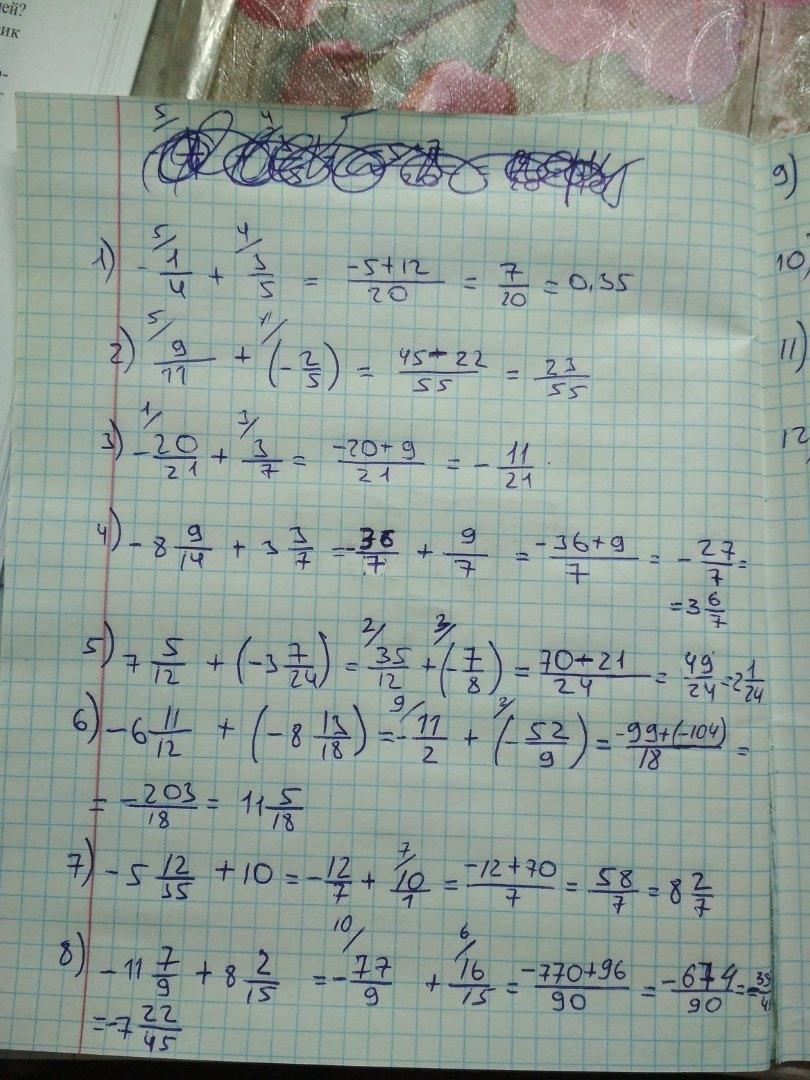 ей?
ик
1) -1/4 + 3/5 = (-5+12)/20 = 7/20 = 0,35
2) 9/11 + (-2/5) = (45-22)/55 = 23/55
3) -20/21 + 3/7 = (-20+9)/21 = -11/21
4) -8 9/14 + 3 3/7 = -36/7 + 9/7 = (-36+9)/7 = -27/7 =
= 3 6/7
5) 7 5/12 + (-3 7/24) = 35/12 + (-7/8) = (70-21)/24 = 49/24 = 2 1/24
6) -6 11/12 + (-8 13/18) = -11/2 + (-52/9) = (-99+(-104))/18 =
= -203/18 = 11 5/18
7) -5 12/35 + 10 = -12/7 + 10/1 = (-12+70)/7 = 58/7 = 8 2/7
8) -11 7/9 + 8 2/15 = -77/9 + 16/15 = (-770+96)/90 = -674/90 =
= -7 22/45
9)
10)
11)
12